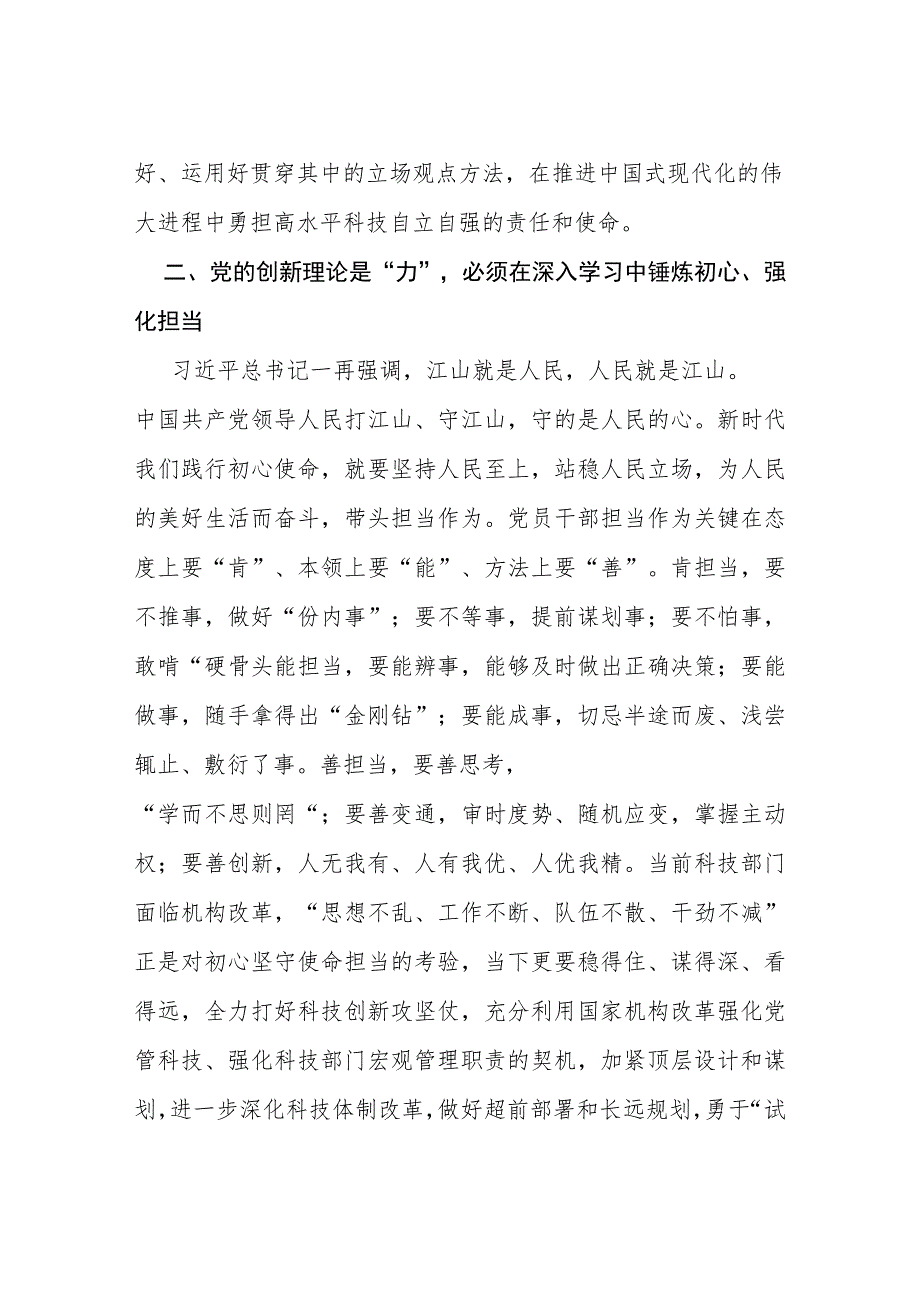 好、运用好贯穿其中的立场观点方法，在推进中国式现代化的伟
大进程中勇担高水平科技自立自强的责任和使命。
二、党的创新理论是“力”，必须在深入学习中锤炼初心、强
化担当
习近平总书记一再强调，江山就是人民，人民就是江山。
中国共产党领导人民打江山、守江山，守的是人民的心。新时代
我们践行初心使命，就要坚持人民至上，站稳人民立场，为人民
的美好生活而奋斗，带头担当作为。党员干部担当作为关键在态
度上要“肯”、本领上要“能”、方法上要“善”。肯担当，要
不推事，做好“份内事”；要不等事，提前谋划事；要不怕事，
敢啃“硬骨头能担当，要能辨事，能够及时做出正确决策；要能
做事，随手拿得出“金刚钻”；要能成事，切忌半途而废、浅尝
辄止、敷衍了事。善担当，要善思考，
“学而不思则罔“；要善变通，审时度势、随机应变，掌握主动
权；要善创新，人无我有、人有我优、人优我精。当前科技部门
面临机构改革，“思想不乱、工作不断、队伍不散、干劲不减”
正是对初心坚守使命担当的考验，当下更要稳得住、谋得深、看
得远，全力打好科技创新攻坚仗，充分利用国家机构改革强化党
管科技、强化科技部门宏观管理职责的契机，加紧顶层设计和谋
划,进一步深化科技体制改革,做好超前部署和长远规划,勇于“试